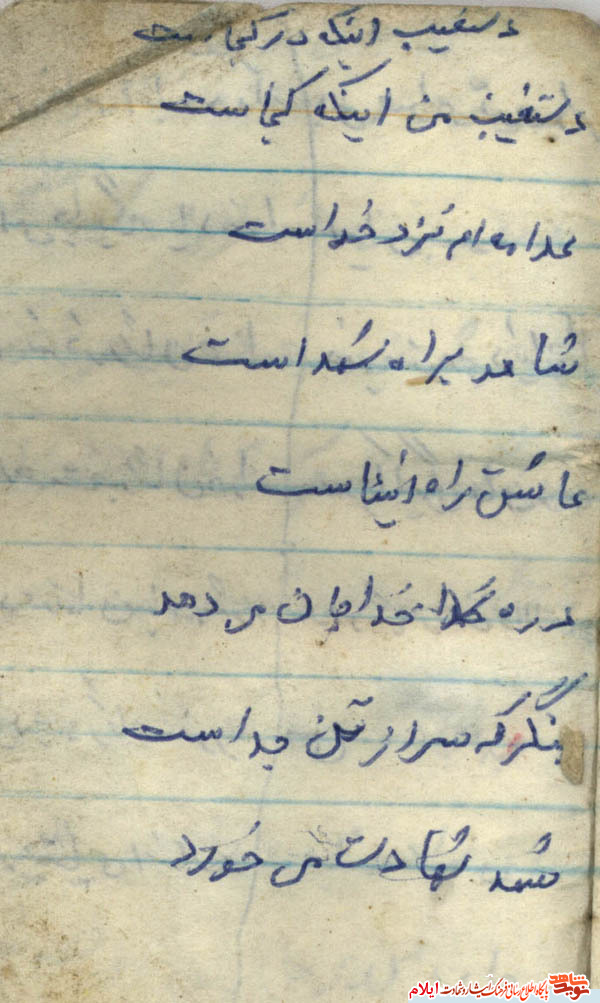 دستغیب اینکه در کجاست
دستغیب من اینکه کجاست
ام نزد خداست
شاهد براه شهداست
عاشق راه انبیاست
در ره خدا جان می دهد
بنگر که سر از تن جداست
شهد شهادت می خورد
نوید شاهد پایگاه اطلاع رسانی فرهنگ ایثار و شهادت ایلام